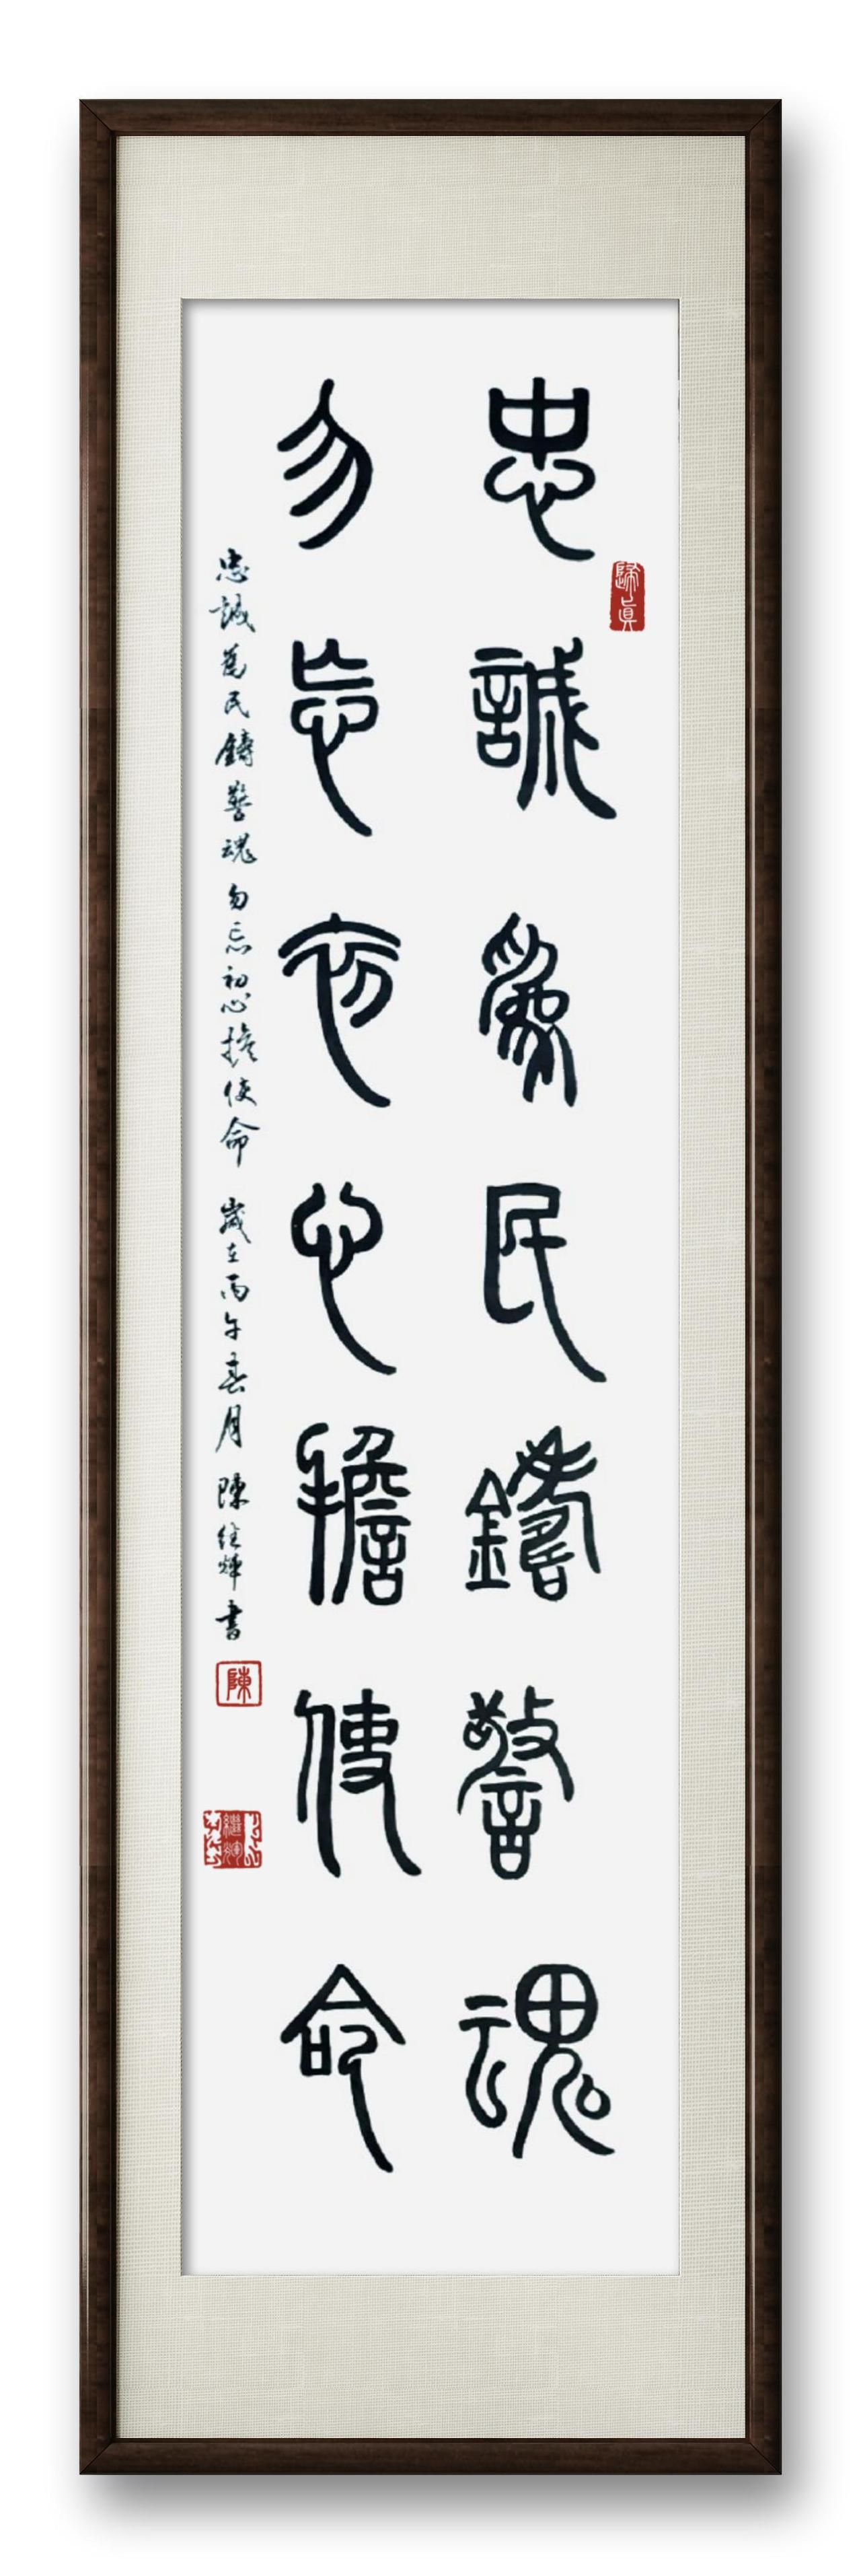 忠誠為民鑄警魂
歸真
勿忘初心擔使命
忠誠為民鑄警魂 勿忘初心擔使命 歲在丙午春月 陳繼輝书
陳
繼輝